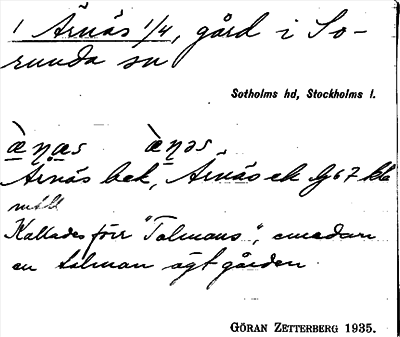 1 Ärnäs 1/4, gård i So-
runda sn
Sotholms hd, Stockholms l.
Ärnäs bek, Ärnäs ek
Kallades förr "Tolmans", emedan
en tolman ägt gården.
GÖRAN ZETTERBERG 1935.